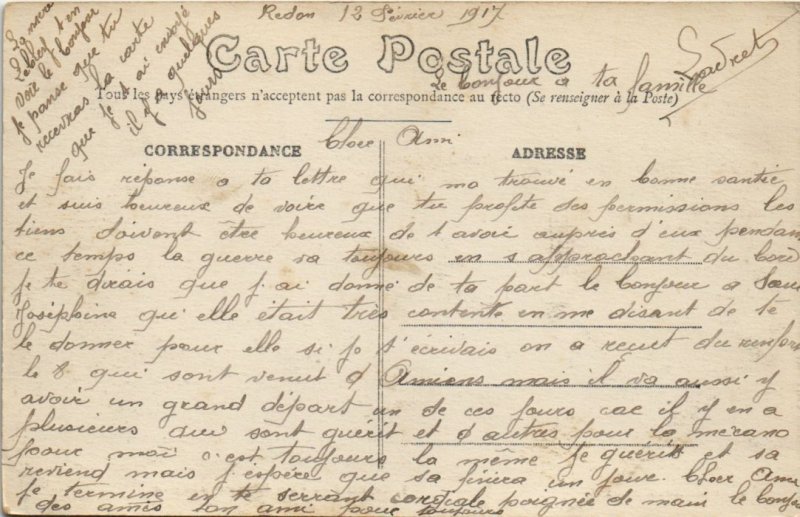 Redon 12 Février 1917
Carte Postale
Le bonjour a ta famille
Tous les pays étrangers n'acceptent pas la correspondance au recto (Se renseigner à la Poste)
Cher Ami
CORRESPONDANCE
ADRESSE
Je fais réponse a ta lettre qui ma trouvé en bonne santée
et suis heureux de voire que tu profite des permissions les
tiens doivent être heureux de t avoir auprès d'eux pendan
ce temps la guerre va toujours en s approchant du bord
je te dirais que j.ai donné de ta part le bonjour a Sœur
Joséphine qu'elle était très contente en me disant de te
le donner pour elle si je t'écrivais on a reçut du renfort
le 8 qui sont venuit d Amiens mais il va aussi y
avoir un grand départ un de ces jours car il y en a
plusieurs qui sont guérit et d autres pour la mécano
pour moi c'est toujours la même je guérit et sa
reviend mais j'espère que sa finira un jour. Cher Ami
je termine en te serrant cordiale poignée de main le bonjour
des amis ton ami pour toujours
voir le bonjour
je panse que tu
recevras la carte
que je t ai envoyé
il y a quelques
jours